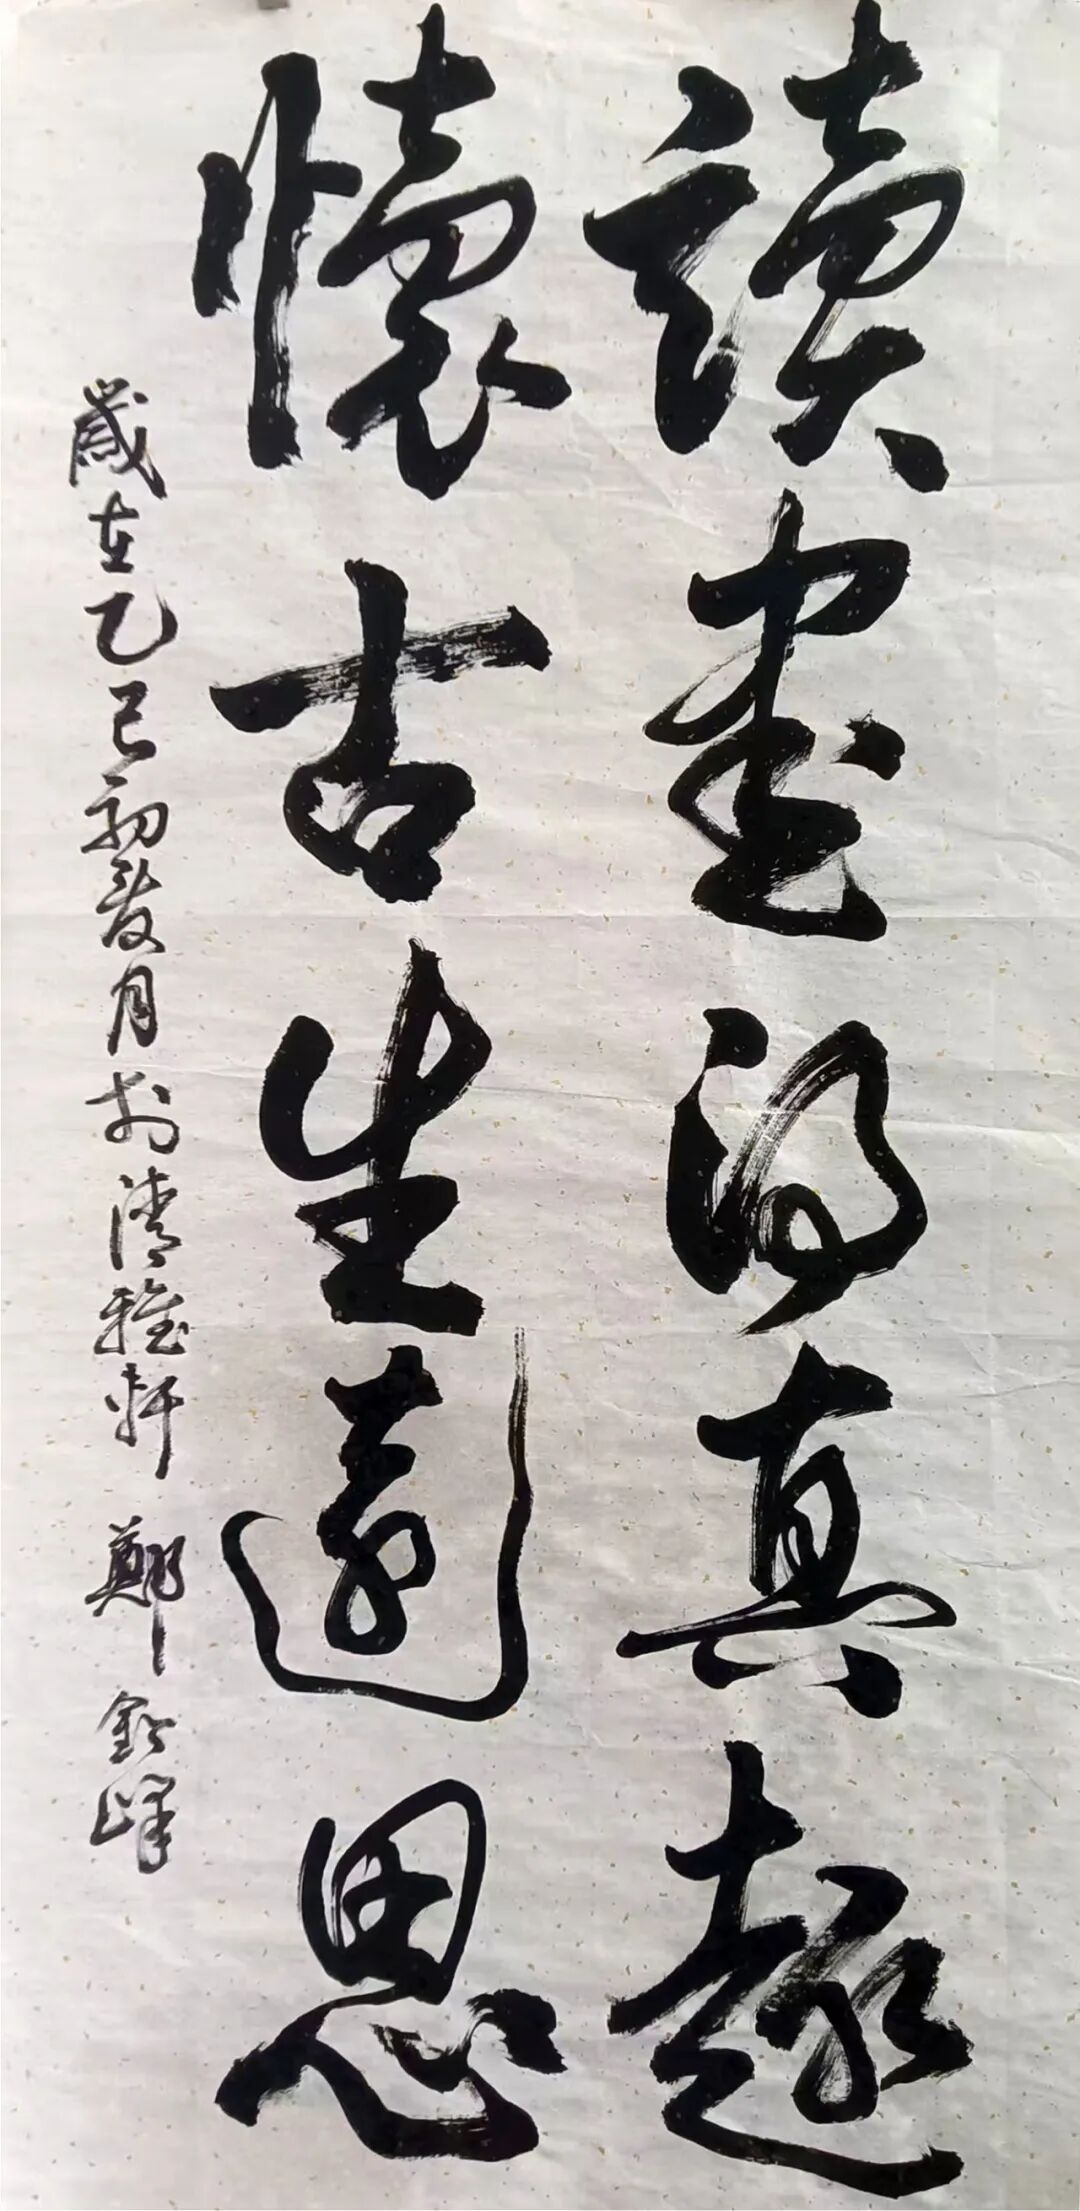 讀書得真趣
懷古生遠思
歲在乙巳初夏月於清雅軒 鄭鈞峰